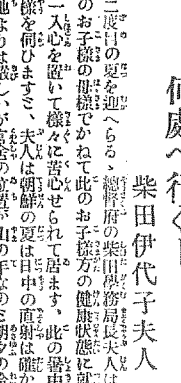 何處へ行く
柴田伊代子夫人
二度目の夏を迎へらるゝ總督府の柴田學務局長夫人は
のお子樣の母樣でかねて此のお子樣方の健康狀態に就
一入心を置いて樣々に苦心せられて居ます、此の暑中
樣を伺ひますミ、夫人は朝鮮の夏は日中の直射は確か
地よりは嚴しいが官舍の位置が山の手なのミ朝夕の